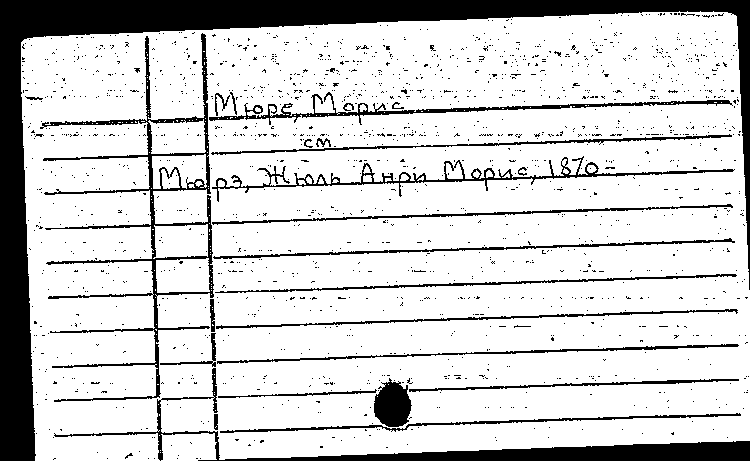 Мюре, Морис
см
Мюрэ, Жюль Анри Морис, 1870-